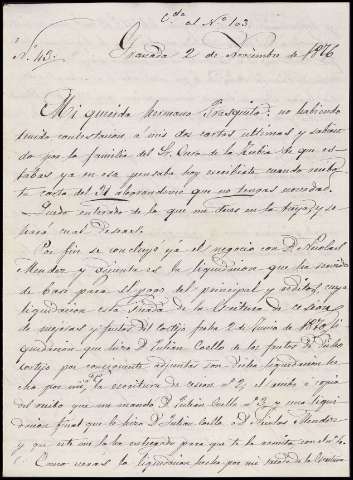 C.da al N.º 103
N.º 43.
Granada 2 de Noviembre de 1876
Mi querido hermano Frasquito: no habiendo
tenido contestacion á mis dos cartas ultimas y sabiendo
por la familia del Sr. Cura de la Zubia que es-
tabas ya en esa pensaba hoy escribirte cuando recibo
tu carta del 31 alegrandome que no tengas novedad.
Quedo enterado de lo que me dices en la tuya y se
hará cual deseas.
Por fin se concluyó ya el negocio con D. Nicolas
Mendez y adjunta es la liquidacion que ha servido
de base para el pago del principal y reditos, cuya
liquidacion está sacada de la Escritura de cesion
de mejoras y frutos del cortijo fecha 2 de Junio de 1870, li-
quidacion que hizo D. Julian Coello de los frutos de dicho
cortijo por consiguiente adjuntas son dicha liquidacion he-
cha por mi, la escritura de cesion nº 2, el recibo ó copia
del recibo que me mandó D. Julian Coello nº 3, y una liqui-
dacion final que le hizo D. Julian Coello á D. Nicolas Mendez
y que este me la ha entregado para que te la remita con el nº 4.
Como verás la liquidacion hecha por mi sacada de la Escritura